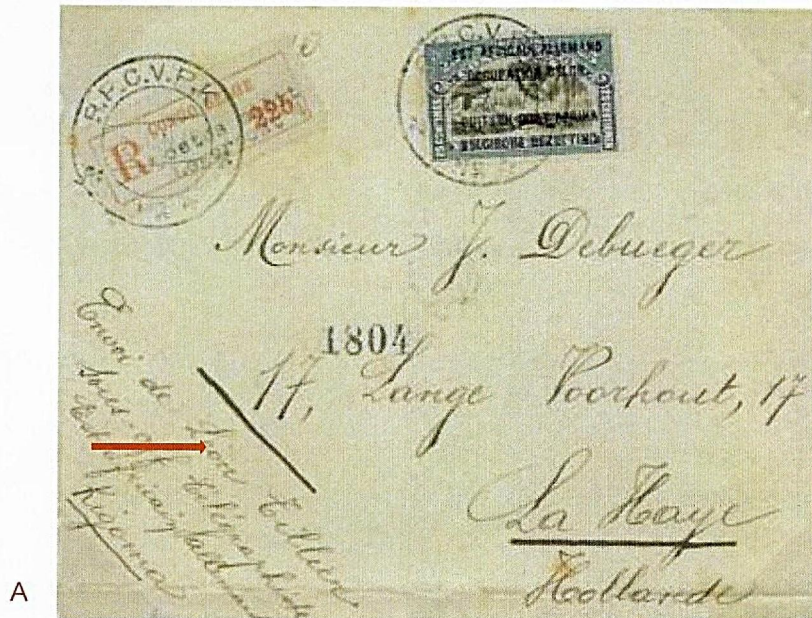 B.P.C.V.P.K.
R
225
B.P.C.V.
EST AFRICAIN ALLEMAND
OCCUPATION BELGE
DUITSCH OOST AFRIKA
BELGISCHE BEZETTING
Monsieur J. Debueger
1804
17, Lange Voorhout, 17
La Haye
Hollande
Envoi de Léon Tillieu
Sous-off Télégraphiste
Kigoma
A